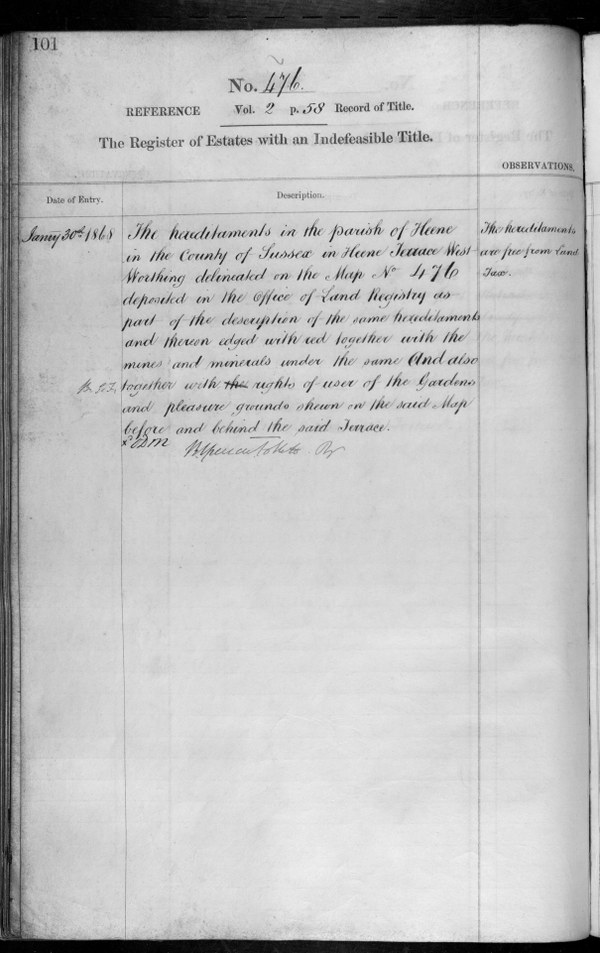 101
No. 476.
REFERENCE Vol. 2 p. 58 Record of Title.
The Register of Estates with an Indefeasible Title.
OBSERVATIONS.
Date of Entry.
Description.
Jany 30th 1868
The hereditaments in the parish of Heene
in the County of Sussex in Heene Terrace West
Worthing delineated on the Map No 476
deposited in the Office of Land Registry as
part of the description of the same hereditaments
and thereon edged with red together with the
mines and minerals under the same And also
together with the rights of user of the Gardens
and pleasure grounds shewn on the said Map
before and behind the said Terrace.
The hereditaments
are free from Land
Tax.